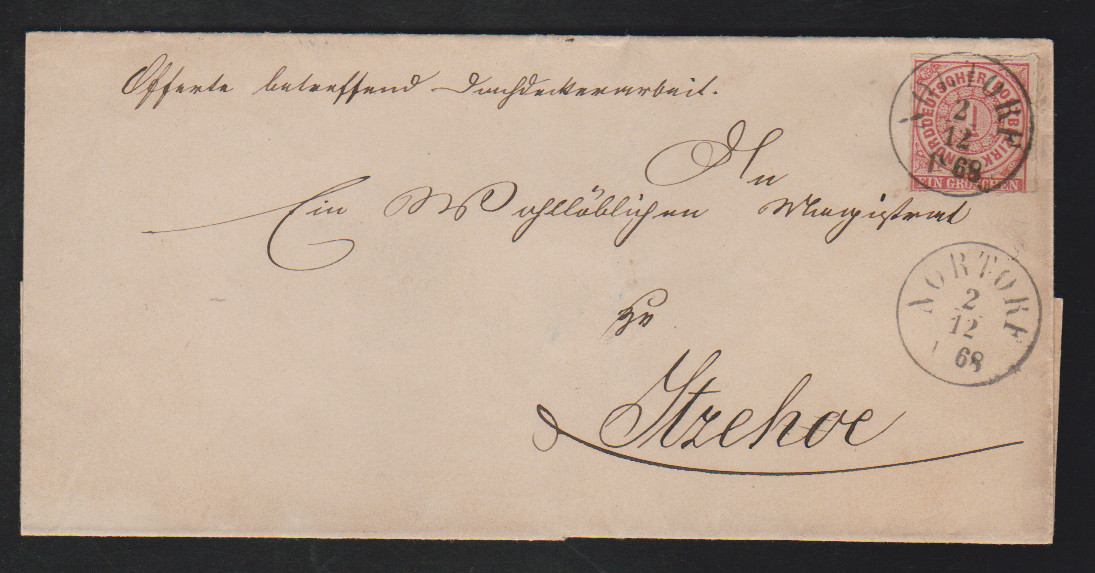 Offerte betreffend Dachdeckerarbeit.
An
Ein Wohllöblichen Magistrat
zu
Itzehoe
NORDDEUTSCHER POSTBEZIRK
1
EIN GROSCHEN
NORTORF
2
12
68
NORTORF
2
12
68